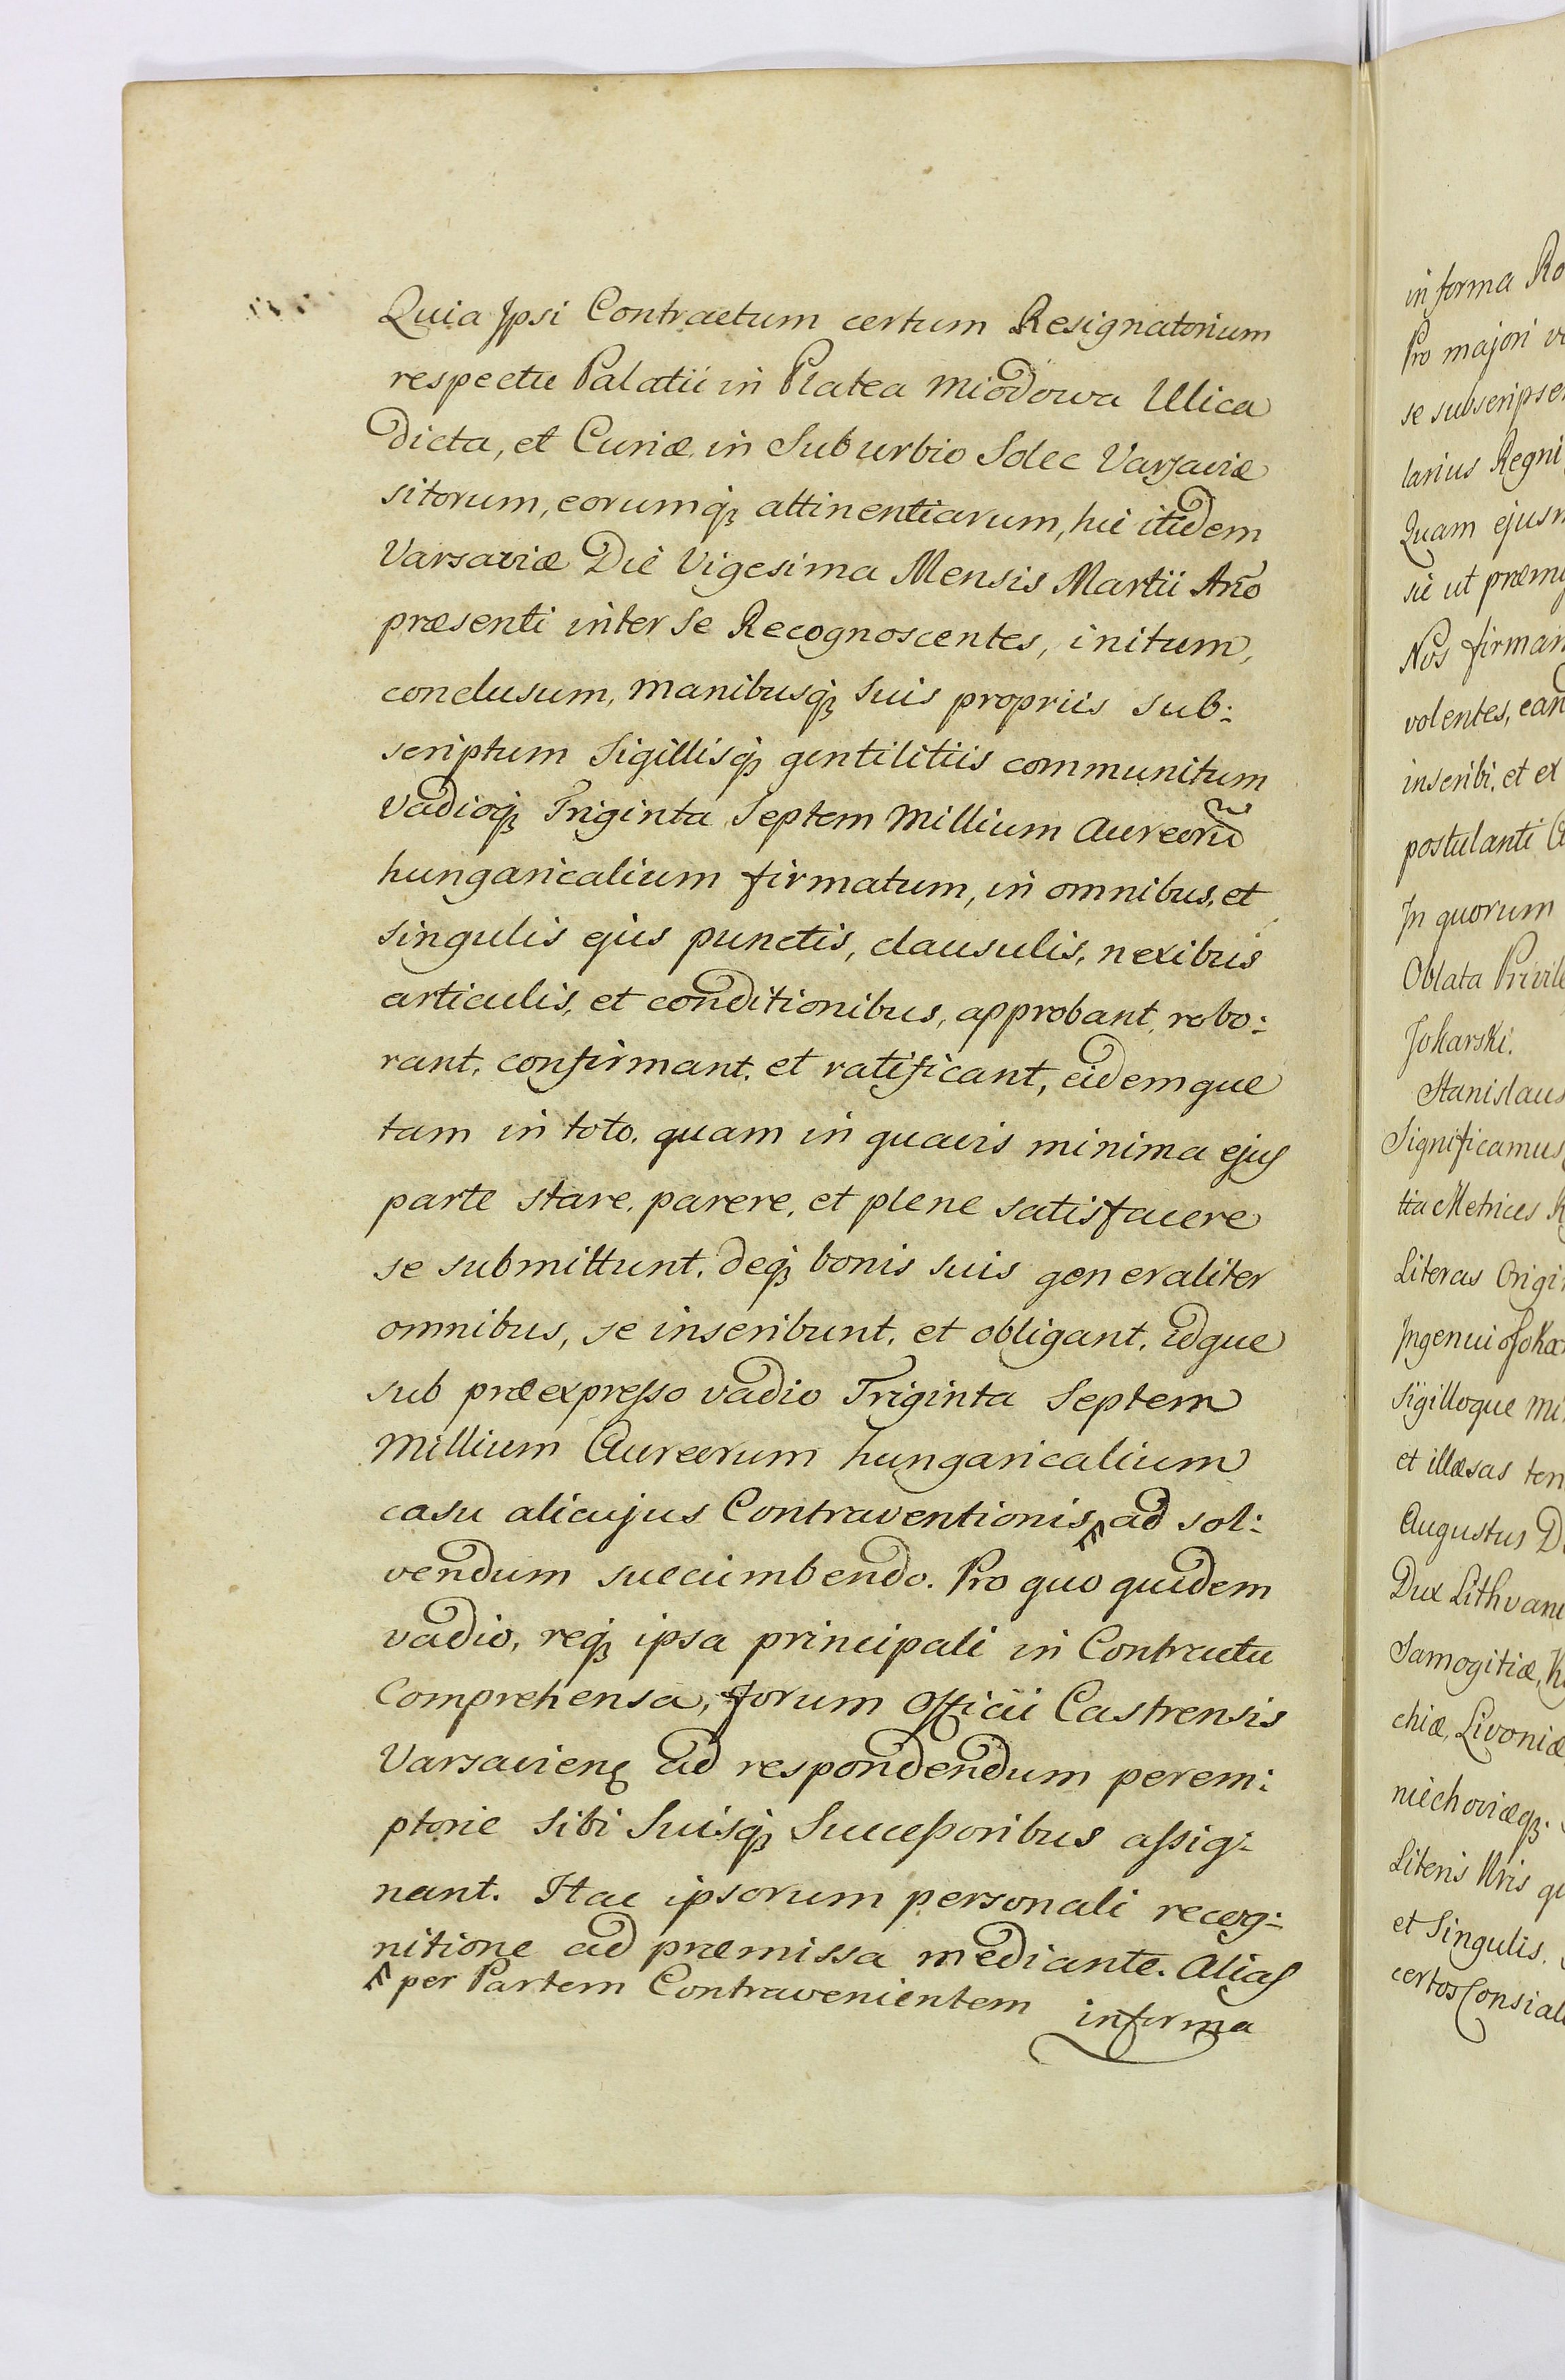 Quia Ipsi Contractum certum Resignatorium
respectu Palatii in Platea Miodowa Ulica
dicta, et Curiæ in Suburbio Solec Varsaviæ
sitorum, eorumq₃ attinentiarum, hic itidem
Varsaviæ Die Vigesima Mensis Martii Anõ
præsenti inter se Recognoscentes, initum,
conclusum, manibusq₃ suis propriis sub:
scriptum Sigillisq₃ gentilitiis communitum
vadioq₃ Triginta Septem Millium Aureorũ
hungaricalium firmatum, in omnibus, et
singulis ejus punctis, clausulis, nexibus
articulis, et conditionibus, approbant, robo:
rant, confirmant, et ratificant, eidemque
tam in toto, quam in quavis minima ejus
parte stare, parere, et plene satisfacere
se submittunt, deq₃ bonis suis generaliter
omnibus, se inscribunt, et obligant, idque
sub præexpresso vadio Triginta Septem
Millium Aureorum hungaricalium
casu alicujus Contraventionis, ad sol:
vendum succumbendo. Pro quo quidem
vadio, req₃ ipsa principali in Contractu
Comprehensa, forum Officii Castrensis
Varsavien ad respondendum perem:
ptorie sibi Suisq₃ Successoribus assig:
nant. Hac ipsorum personali recog:
nitione ad præmissa mediante. Alias
per Partem Contravenientem
in forma
in forma Ro
Pro majori
se subscripse
larius Regni
Quam ejusm
sic ut præmi
Nos firmam
volentes, ean
inscribi, et ex
postulanti
In quorum
Oblata Privile
Jokarski.
Stanislaus
Significamus
tia Metrices
Literas Origi
Ingenui Joka
Sigilloque
et illæsas ten
Augustus D
Dux Lithvani
Samogitiæ, K
chiæ, Livoniæ
niechoviæq₃
Literis Nris qu
et Singulis
certos Consili